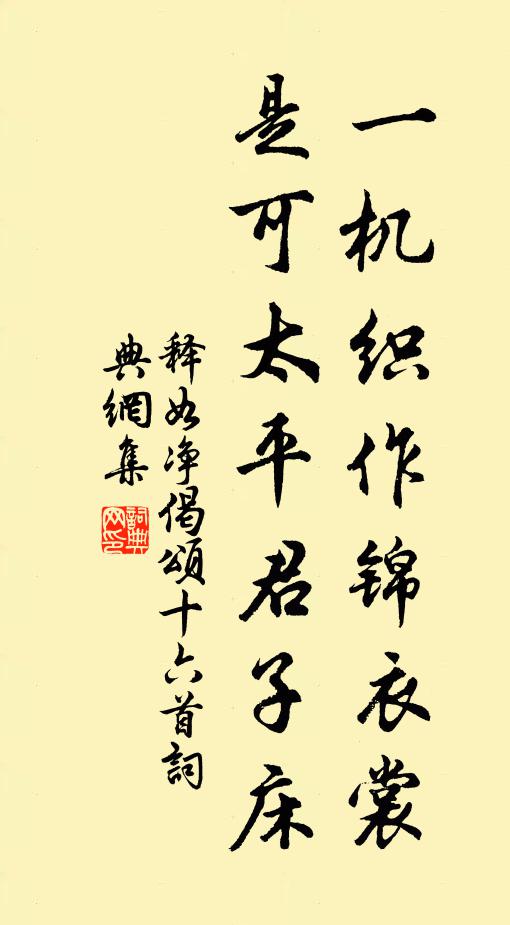 一机织作锦衣裳
是可太平君子床
释如净偈颂十六首詞
典網集
詞典网印